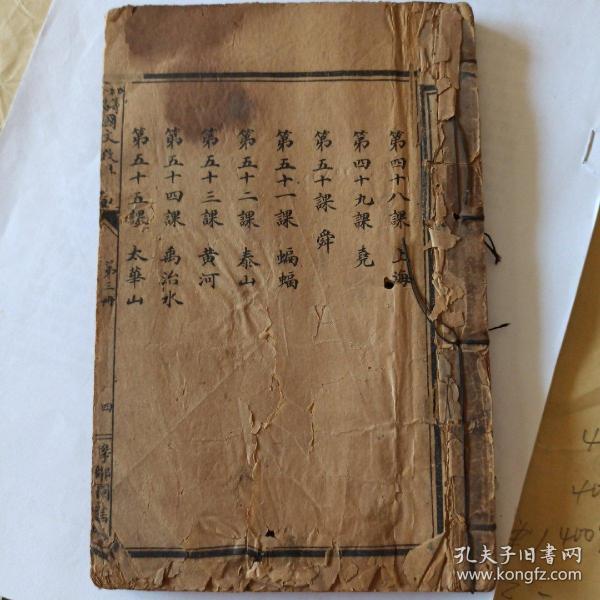 第四十八課 上海
第四十九課 堯
第五十課 舜
第五十一課 蝙蝠
第五十二課 泰山
第五十三課 黄河
第五十四課 禹治水
第五十五課 太華山
國文教
第三冊
四
孔夫子旧书网
www.kongfz.com
4
40
1400